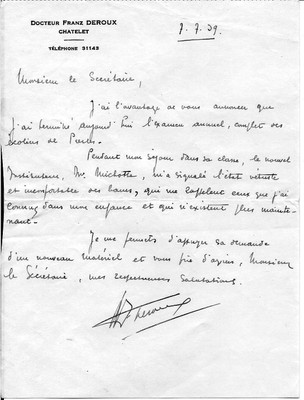 DOCTEUR FRANZ DEROUX
CHATELET
TÉLÉPHONE 31143
7.7.39.
Monsieur le Secrétaire,
J'ai l'avantage de vous annoncer que
j'ai terminé aujourd'hui l'examen annuel, complet des
Ecoliers de
Pendant mon séjour dans sa classe, le nouvel
Instituteur, Mr Michotte, m'a signalé l'état vétuste
et inconfortable des bancs, qui me rappellent ceux que j'ai
connus dans mon enfance et qui n'existent plus mainte-
nant.
Je me permets d'appuyer sa demande
d'un nouveau matériel et vous prie d'agréer, Monsieur
le Secrétaire, mes respectueuses salutations.